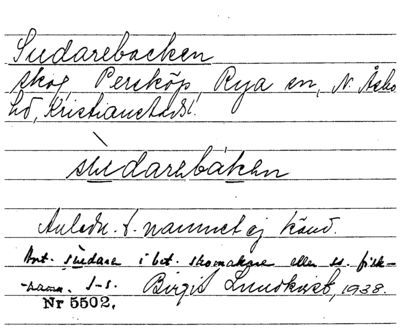 Sudarebacken
skog, Perstorp, Rya sn, N. Åsbo
hd, Kristianstads l.
sùdarebáken
Anledn. t. namnet ej känd.
Ant. sudare i bet. skomakare eller ss. fisk-
namn. I-s. Birgit Lundkvist, 1938.
Nr 5502.